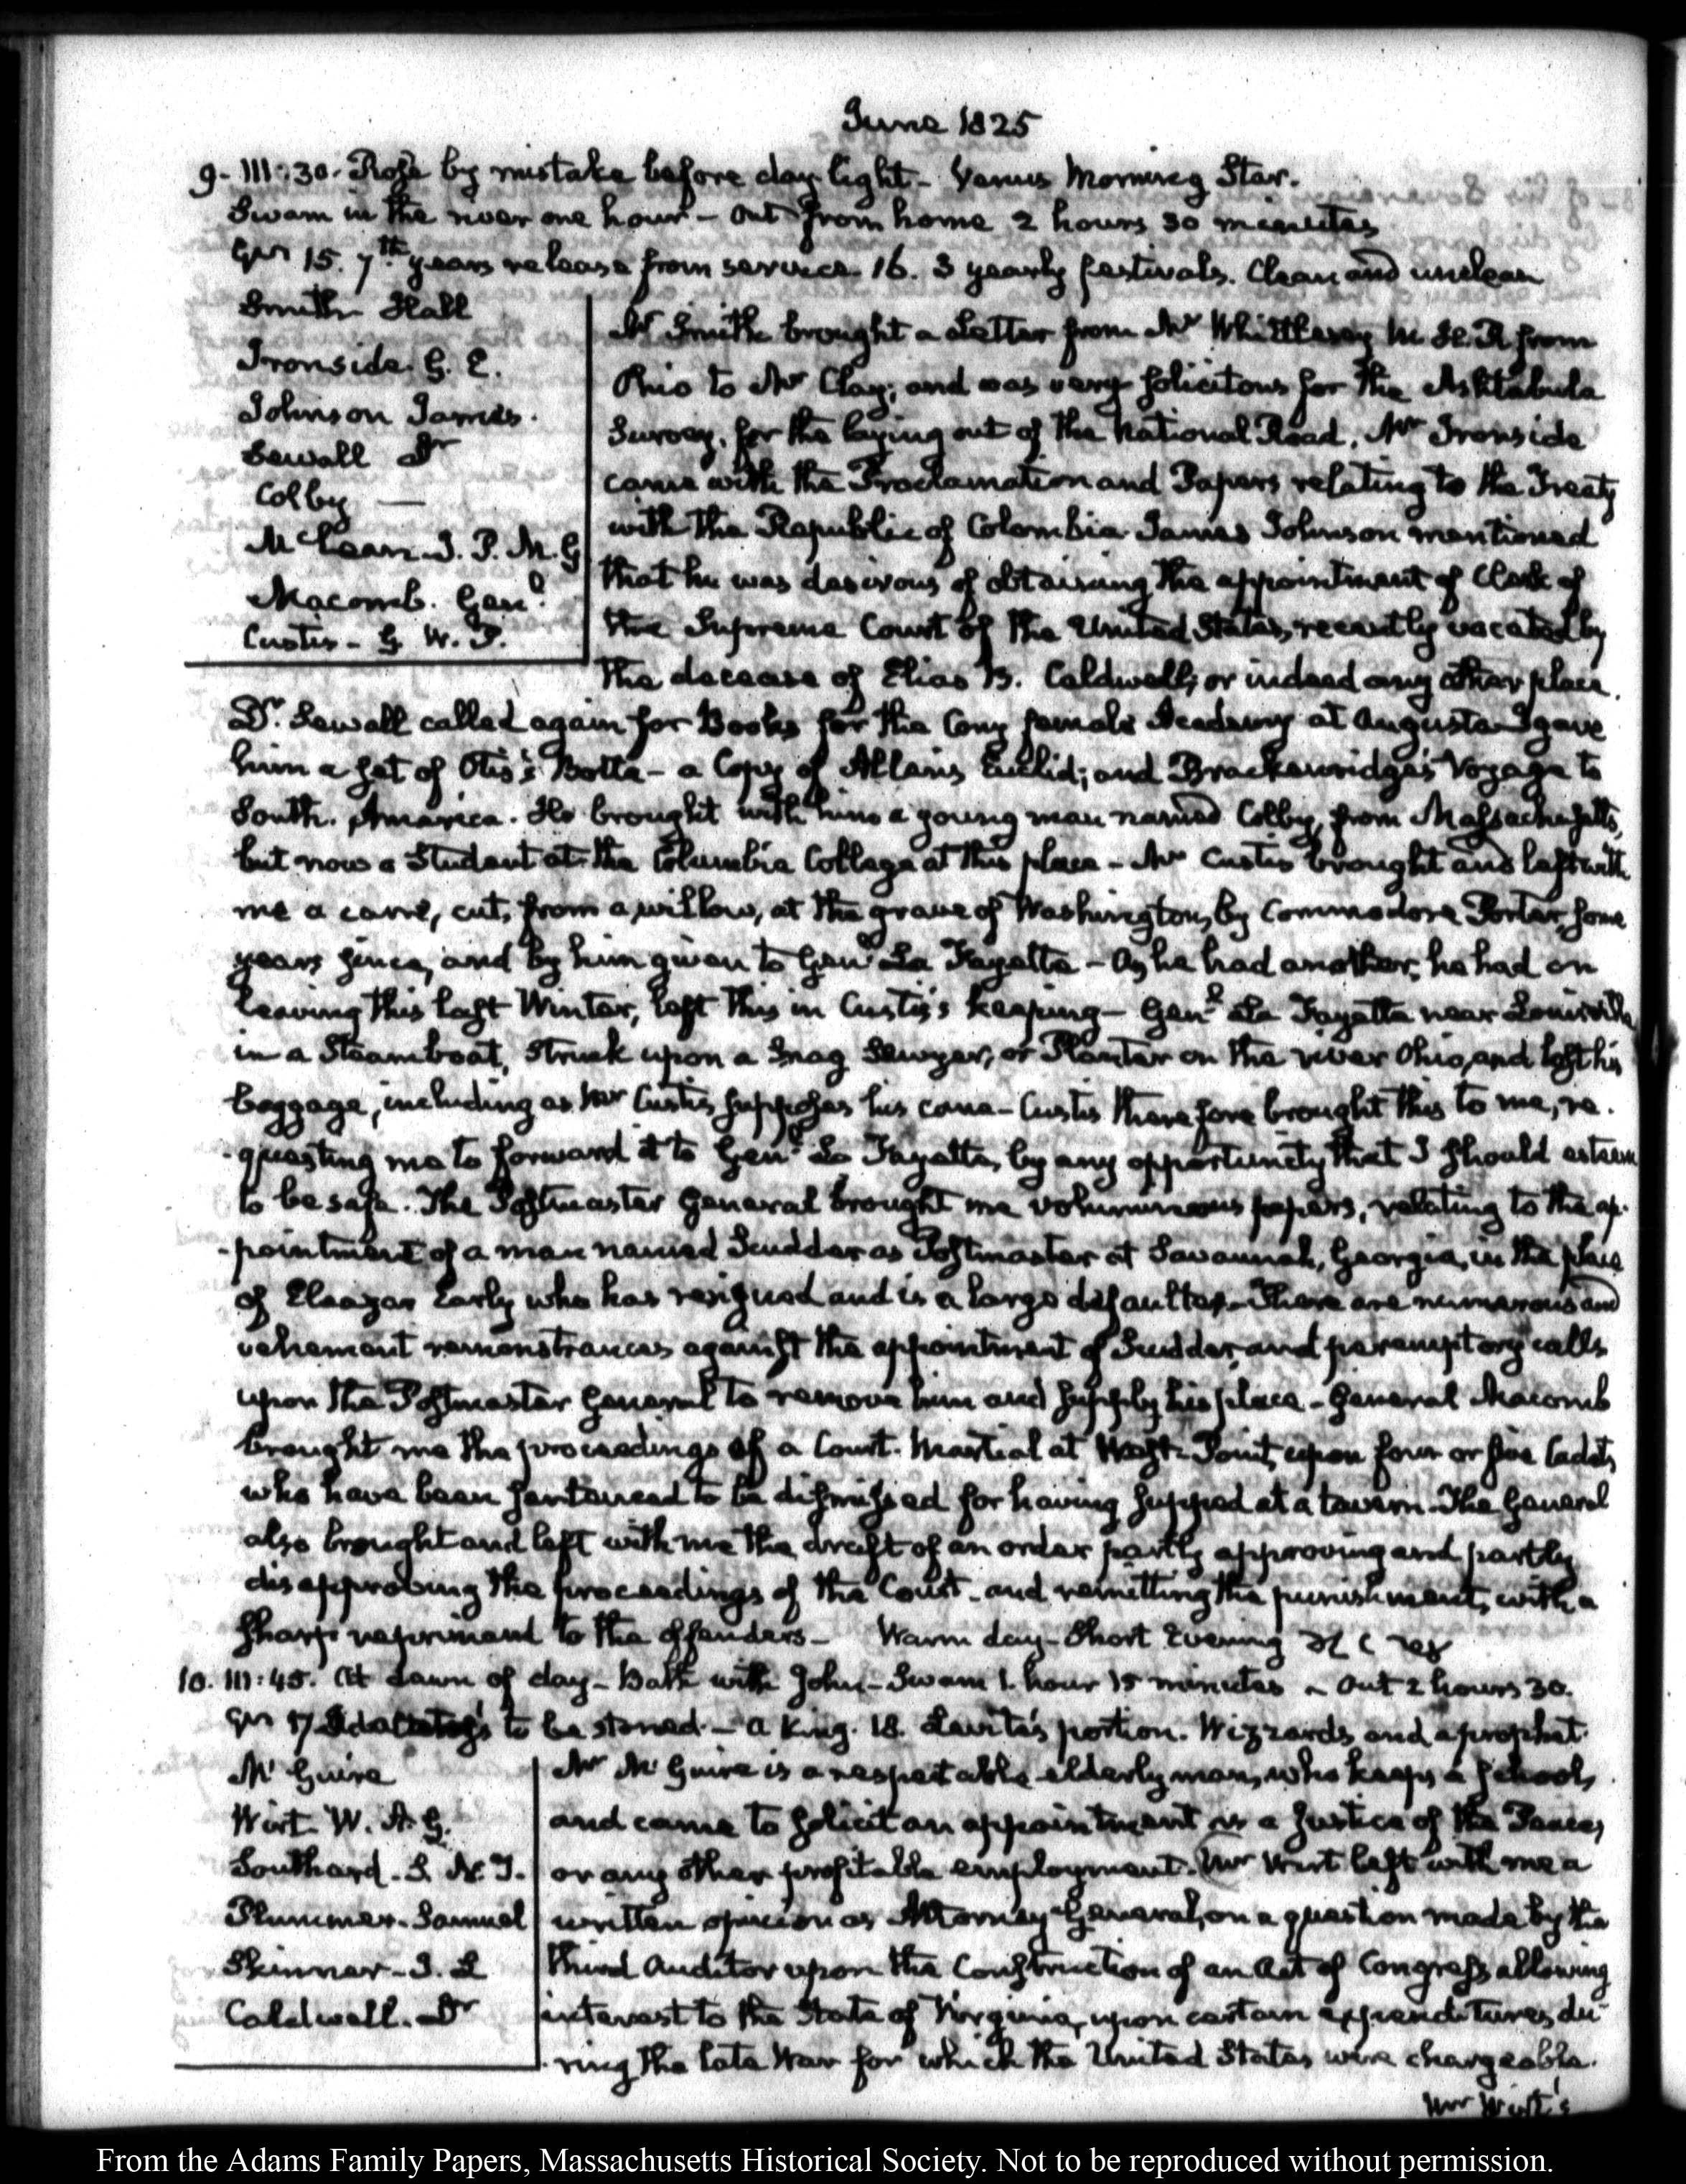 June 1825
9. III:30. Rose by mistake before day light - Venus Morning Star.
Swam in the river one hour - Out from home 2 hours 30 minutes
15. 7th. years release from service. 16. 3 yearly festivals. Clean and unclean
Smith Hall
Ironside. G. E.
Johnson James.
Sewall Dr
Colby —
McLean J. P. M. G.
Macomb. Genl.
Custis - G. W. P.
Mr Smith brought a Letter from Mr Whittlesey M. H. R from
Ohio to Mr Clay; and was very solicitous for the Ashtabula
Survey, for the laying out of the National Road. Mr Ironside
came with the Proclamation and Papers relating to the Treaty
with the Republic of Colombia. James Johnson mentioned
that he was desirous of obtaining the appointment of Clerk of
the Supreme Court of the United States, recently vacated by
the decease of Elias B. Caldwell; or indeed any other place.
Dr. Sewall called again for Books for the Cony female Academy at Augusta. I gave
him a set of Otis's Botta - a Copy of Allen's Euclid; and Brackenridge's Voyage to
South. America. He brought with him a young man named Colby, from Massachusetts,
but now a Student at the Columbia College at this place - Mr Custis brought and left with
me a cane, cut, from a willow, at the grave of Washington, by Commodore Porter, some
years since, and by him given to Genl La Fayette - As he had another, he had on
leaving this last Winter, left this in Custis's keeping - Genl. La Fayette near Louisville
in a Steamboat, struck upon a Snag Sawyer, or Planter on the river Ohio, and lost his
baggage, including as Mr Custis supposes his cane - Custis therefore brought this to me, re-
-questing me to forward it to Genl. La Fayette, by any opportunity that I should esteem
to be safe. The Postmaster General brought me voluminous papers, relating to the ap-
-pointment of a man named Scudder as Postmaster at Savannah, Georgia, in the place
of Eleazar Early who has resigned and is a large defaulter. There are numerous and
vehement remonstrances against the appointment of Scudder, and peremptory calls
upon the Postmaster General to remove him and supply his place - General Macomb
brought me the proceedings of a Court-Martial at West-Point, upon four or five Cadets,
who have been sentenced to be dismissed for having supped at a tavern. The General
also brought and left with me the draft of an order partly approving and partly
disapproving the proceedings of the Court - and remitting the punishment, with a
sharp reprimand to the offenders - Warm day - Short Evening
10. III:45. At dawn of day - Bath with John - Swam 1. hour 15 minutes - Out 2 hours 30.
17 to be stoned. - a King. 18. Levite's portion. Wizzards and a prophet.
McGuire
Wirt. W. A. G.
Southard. S. N. J.
Plummer. Samuel
Skinner - J. L
Caldwell. Dr
Mr McGuire is a respectable elderly man, who keeps a school,
and came to solicit an appointment as a Justice of the Peace,
or any other profitable employment. Mr Wirt left with me a
written opinion as Attorney General, on a question made by the
third Auditor upon the Construction of an Act of Congress allowing
interest to the State of Virginia, upon certain expenditures du-
-ring the late War for which the United States were chargeable.
Mr Wirt's
From the Adams Family Papers, Massachusetts Historical Society. Not to be reproduced without permission.